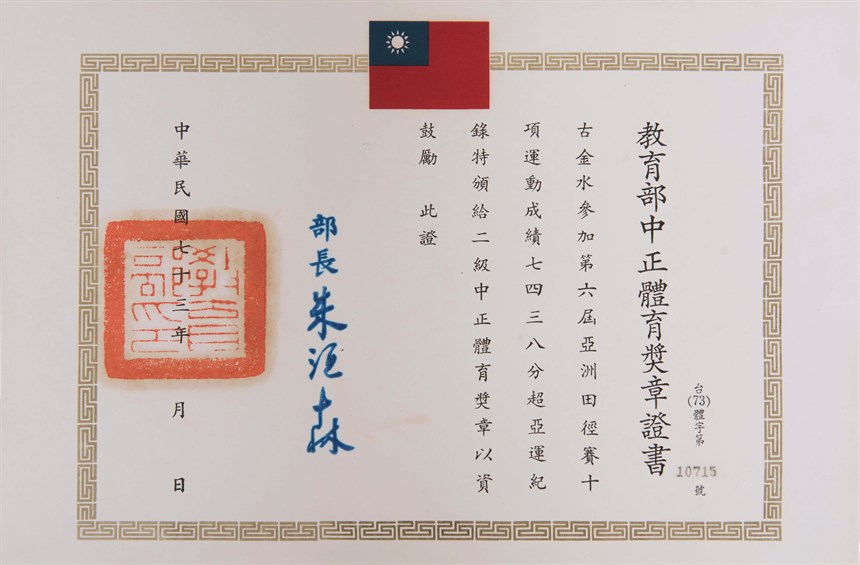 教育部中正體育獎章證書
台(73)體字第10715號
古金水參加第六屆亞洲田徑賽十
項運動成績七四三八分超亞運紀
錄特頒給二級中正體育獎章以資
鼓勵 此證
部長 朱滙森
中華民國七十三年 月 日